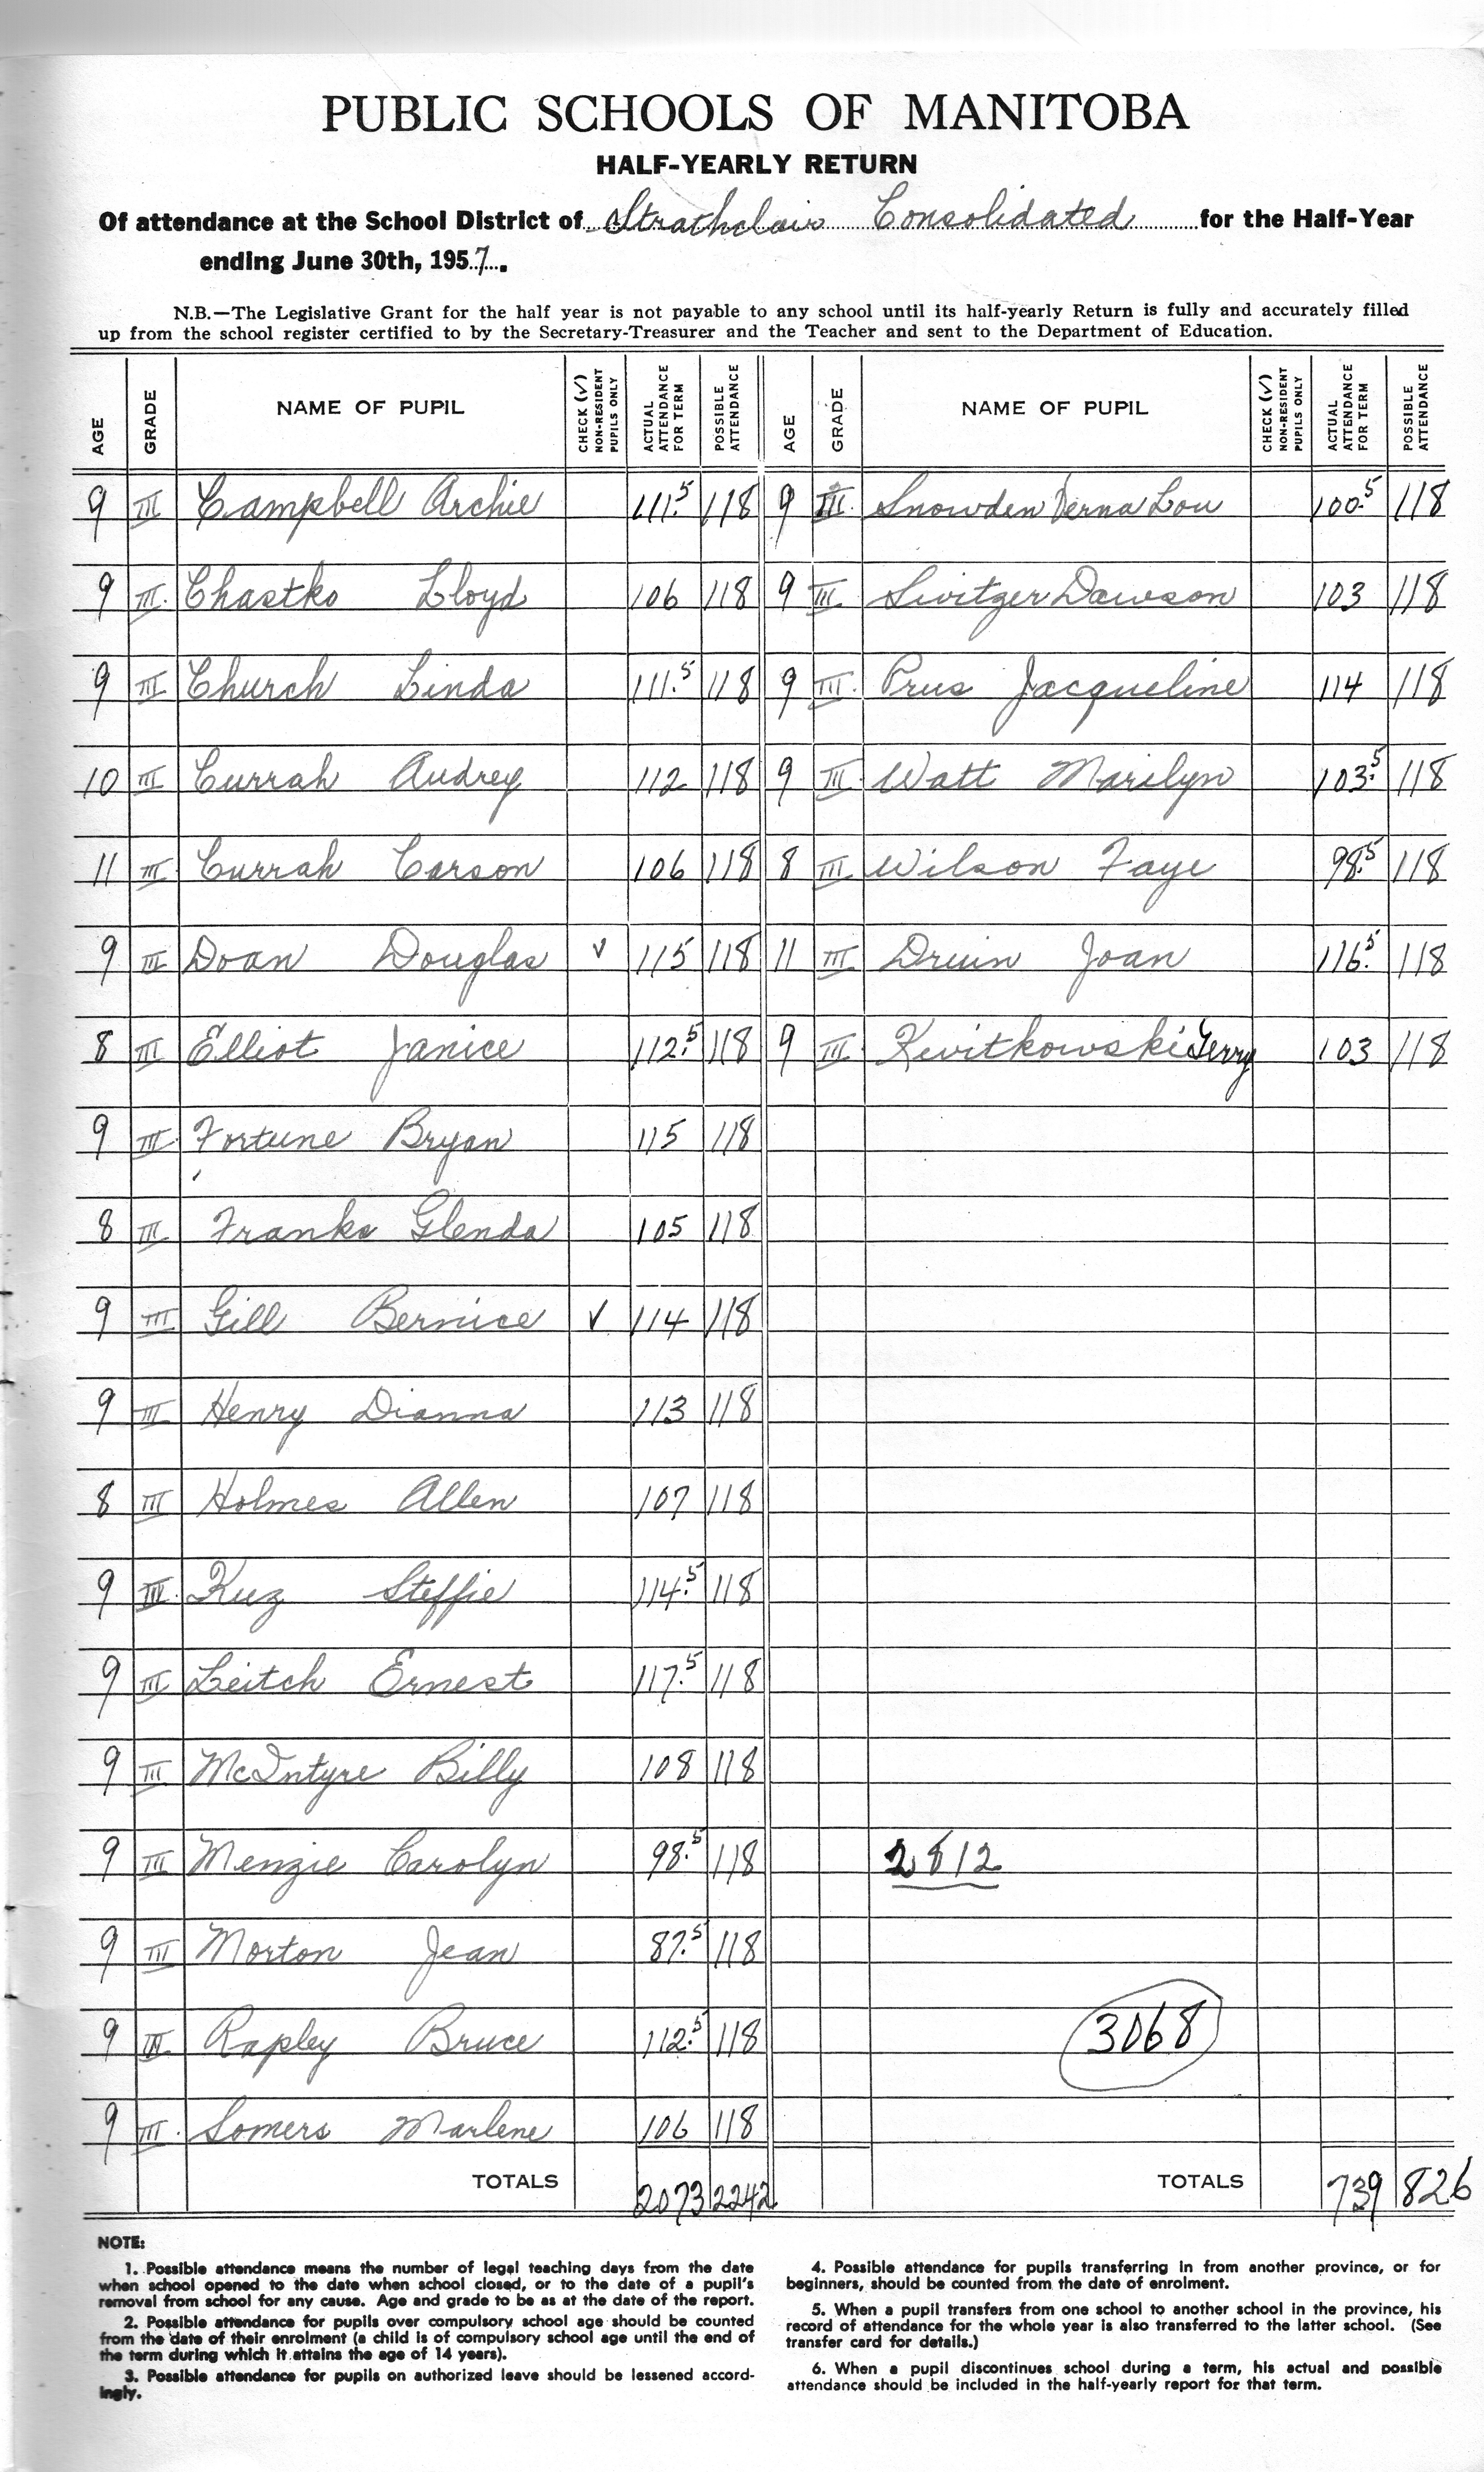 PUBLIC SCHOOLS OF MANITOBA
HALF-YEARLY RETURN
Of attendance at the School District of Strathclair Consolidated for the Half-Year
ending June 30th, 1957.
N.B.—The Legislative Grant for the half year is not payable to any school until its half-yearly Return is fully and accurately filled
up from the school register certified to by the Secretary-Treasurer and the Teacher and sent to the Department of Education.
AGE GRADE NAME OF PUPIL CHECK (✓) NON-RESIDENT PUPILS ONLY ACTUAL ATTENDANCE FOR TERM POSSIBLE ATTENDANCE AGE GRADE NAME OF PUPIL CHECK (✓) NON-RESIDENT PUPILS ONLY ACTUAL ATTENDANCE FOR TERM POSSIBLE ATTENDANCE
9 III Campbell Archie 111.5 118 9 III. Snowden Verna Lou 100.5 118
9 III. Chastko Lloyd 106 118 9 III. Switzer Dawson 103 118
9 III Church Linda 111.5 118 9 III. Prus Jacqueline 114 118
10 III Currah Audrey 112 118 9 III. Watt Marilyn 103.5 118
11 III Currah Carson 106 118 8 III Wilson Faye 98.5 118
9 III Doan Douglas ✓ 115 118 11 III Druin Joan 116.5 118
8 III Elliot Janice 112.5 118 9 III Kwitkowski Gerry 103 118
9 III. Fortune Bryan 115 118
8 III Franks Glenda 105 118
9 III Gill Bernice ✓ 114 118
9 III Henry Dianna 113 118
8 III Holmes Allen 107 118
9 III. Kuz Steffie 114.5 118
9 III Leitch Ernest 117.5 118
9 III McIntyre Billy 108 118
9 III Menzie Carolyn 98.5 118 2812
9 III Morton Jean 87.5 118
9 III Rapley Bruce 112.5 118 3068
9 III. Somers Marlene 106 118
TOTALS 2073 2242 TOTALS 739 826
NOTE:
1. Possible attendance means the number of legal teaching days from the date
when school opened to the date when school closed, or to the date of a pupil's
removal from school for any cause. Age and grade to be as at the date of the report.
2. Possible attendance for pupils over compulsory school age should be counted
from the date of their enrolment (a child is of compulsory school age until the end of
the term during which it attains the age of 14 years).
3. Possible attendance for pupils on authorized leave should be lessened accord-
ingly.
4. Possible attendance for pupils transferring in from another province, or for
beginners, should be counted from the date of enrolment.
5. When a pupil transfers from one school to another school in the province, his
record of attendance for the whole year is also transferred to the latter school. (See
transfer card for details.)
6. When a pupil discontinues school during a term, his actual and possible
attendance should be included in the half-yearly report for that term.